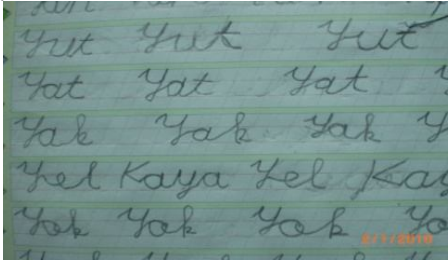 Yut Yut Yut
Yat Yat Yat Y
Yak Yak Yak Y
Yel Kaya Yel Kay
Yok Yok Yok Yo
2/1/2010